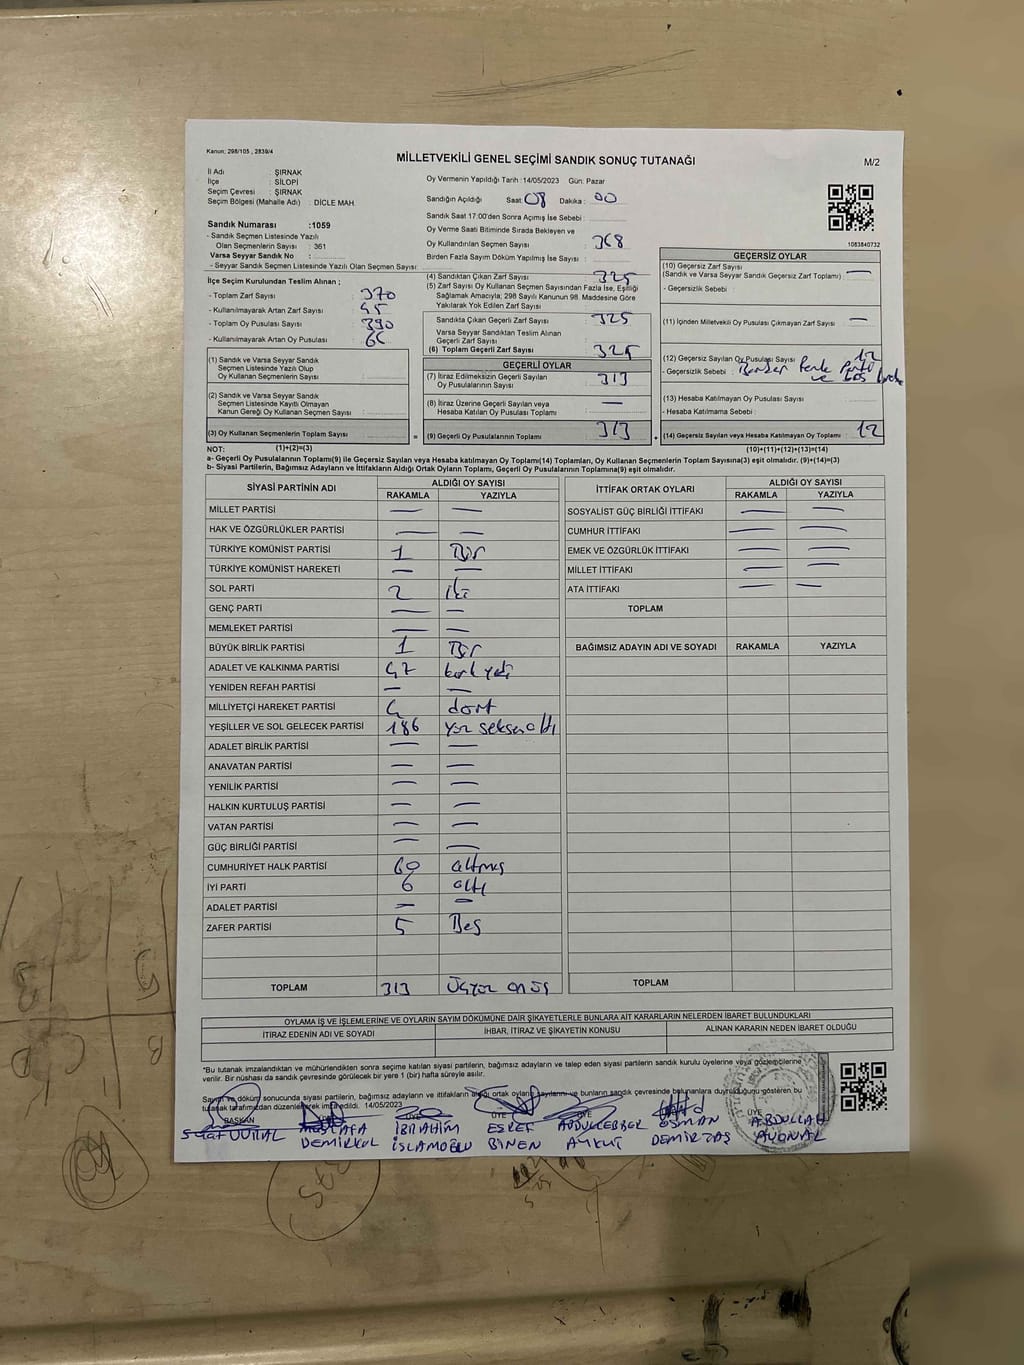 Kanun: 298/105 , 2839/4
MİLLETVEKİLİ GENEL SEÇİMİ SANDIK SONUÇ TUTANAĞI
M/2
İl Adı : ŞIRNAK
İlçe : SİLOPİ
Seçim Çevresi : ŞIRNAK
Seçim Bölgesi (Mahalle Adı) : DİCLE MAH.
Sandık Numarası :1059
- Sandık Seçmen Listesinde Yazılı
Olan Seçmenlerin Sayısı : 361
Varsa Seyyar Sandık No :
- Seyyar Sandık Seçmen Listesinde Yazılı Olan Seçmen Sayısı:
Oy Vermenin Yapıldığı Tarih :14/05/2023 Gün: Pazar
Sandığın Açıldığı Saat: 08 Dakika : 00
Sandık Saat 17:00'den Sonra Açılmış İse Sebebi :
Oy Verme Saati Bitiminde Sırada Bekleyen ve
Oy Kullandırılan Seçmen Sayısı : 368
Birden Fazla Sayım Döküm Yapılmış İse Sayısı :
1083840732
İlçe Seçim Kurulundan Teslim Alınan ;
- Toplam Zarf Sayısı : 370
- Kullanılmayarak Artan Zarf Sayısı : 45
- Toplam Oy Pusulası Sayısı : 390
- Kullanılmayarak Artan Oy Pusulası :
(1) Sandık ve Varsa Seyyar Sandık
Seçmen Listesinde Yazılı Olup
Oy Kullanan Seçmenlerin Sayısı :
(2) Sandık ve Varsa Seyyar Sandık
Seçmen Listesinde Kayıtlı Olmayan
Kanun Gereği Oy Kullanan Seçmen Sayısı :
(3) Oy Kullanan Seçmenlerin Toplam Sayısı
(4) Sandıktan Çıkan Zarf Sayısı : 325
(5) Zarf Sayısı Oy Kullanan Seçmen Sayısından Fazla İse, Eşitliği
Sağlamak Amacıyla; 298 Sayılı Kanunun 98. Maddesine Göre
Yakılarak Yok Edilen Zarf Sayısı :
Sandıkta Çıkan Geçerli Zarf Sayısı : 325
Varsa Seyyar Sandıktan Teslim Alınan
Geçerli Zarf Sayısı :
(6) Toplam Geçerli Zarf Sayısı : 325
GEÇERLİ OYLAR
(7) İtiraz Edilmeksizin Geçerli Sayılan
Oy Pusulalarının Sayısı : 313
(8) İtiraz Üzerine Geçerli Sayılan veya
Hesaba Katılan Oy Pusulası Toplamı : —
= (9) Geçerli Oy Pusulalarının Toplamı : 313
GEÇERSİZ OYLAR
(10) Geçersiz Zarf Sayısı : —
(Sandık ve Varsa Seyyar Sandık Geçersiz Zarf Toplamı)
- Geçersizlik Sebebi :
(11) İçinden Milletvekili Oy Pusulası Çıkmayan Zarf Sayısı : —
(12) Geçersiz Sayılan Oy Pusulası Sayısı : 12
- Geçersizlik Sebebi : ve
(13) Hesaba Katılmayan Oy Pusulası Sayısı :
- Hesaba Katılmama Sebebi :
(14) Geçersiz Sayılan veya Hesaba Katılmayan Oy Toplamı : 12
NOT: (1)+(2)=(3) (10)+(11)+(12)+(13)=(14)
a- Geçerli Oy Pusulalarının Toplamı(9) ile Geçersiz Sayılan veya Hesaba katılmayan Oy Toplamı(14) Toplamları, Oy Kullanan Seçmenlerin Toplam Sayısına(3) eşit olmalıdır. (9)+(14)=(3)
b- Siyasi Partilerin, Bağımsız Adayların ve İttifakların Aldığı Ortak Oyların Toplamı, Geçerli Oy Pusulalarının Toplamına(9) eşit olmalıdır.
SİYASİ PARTİNİN ADI ALDIĞI OY SAYISI
RAKAMLA YAZIYLA
MİLLET PARTİSİ — —
HAK VE ÖZGÜRLÜKLER PARTİSİ — —
TÜRKİYE KOMÜNİST PARTİSİ 1 Bir
TÜRKİYE KOMÜNİST HAREKETİ — —
SOL PARTİ 2 iki
GENÇ PARTİ — —
MEMLEKET PARTİSİ — —
BÜYÜK BİRLİK PARTİSİ 1 Bir
ADALET VE KALKINMA PARTİSİ 47 kırk yedi
YENİDEN REFAH PARTİSİ — —
MİLLİYETÇİ HAREKET PARTİSİ 4 dört
YEŞİLLER VE SOL GELECEK PARTİSİ 186 yüz seksen altı
ADALET BİRLİK PARTİSİ — —
ANAVATAN PARTİSİ — —
YENİLİK PARTİSİ — —
HALKIN KURTULUŞ PARTİSİ — —
VATAN PARTİSİ — —
GÜÇ BİRLİĞİ PARTİSİ — —
CUMHURİYET HALK PARTİSİ 60 altmış
İYİ PARTİ 6 altı
ADALET PARTİSİ — —
ZAFER PARTİSİ 5 Beş
TOPLAM 313 Üçyüz on üç
İTTİFAK ORTAK OYLARI ALDIĞI OY SAYISI
RAKAMLA YAZIYLA
SOSYALİST GÜÇ BİRLİĞİ İTTİFAKI — —
CUMHUR İTTİFAKI — —
EMEK VE ÖZGÜRLÜK İTTİFAKI — —
MİLLET İTTİFAKI — —
ATA İTTİFAKI — —
TOPLAM
BAĞIMSIZ ADAYIN ADI VE SOYADI RAKAMLA YAZIYLA
TOPLAM
OYLAMA İŞ VE İŞLEMLERİNE VE OYLARIN SAYIM DÖKÜMÜNE DAİR ŞİKAYETLERLE BUNLARA AİT KARARLARIN NELERDEN İBARET BULUNDUKLARI
İTİRAZ EDENİN ADI VE SOYADI İHBAR, İTİRAZ VE ŞİKAYETİN KONUSU ALINAN KARARIN NEDEN İBARET OLDUĞU
*Bu tutanak imzalandıktan ve mühürlendikten sonra seçime katılan siyasi partilerin, bağımsız adayların ve talep eden siyasi partilerin sandık kurulu üyelerine veya gözlemcilerine
verilir. Bir nüshası da sandık çevresinde görülecek bir yere 1 (bir) hafta süreyle asılır.
Sayım ve döküm sonucunda siyasi partilerin, bağımsız adayların ve ittifakların aldığı ortak oyların sayılarını ve bunların sandık çevresinde bulunanlara duyrulduğunu gösteren bu
tutanak tarafımızdan düzenlenerek imza edildi. 14/05/2023
BAŞKAN ÜYE ÜYE ÜYE ÜYE ÜYE
VURAL MUSTAFA İBRAHİM EŞREF ABDULCEBBAR OSMAN ABDULLAH
DEMİRKOL İSLAMOĞLU BİNEN AYKUT DEMİRTAŞ